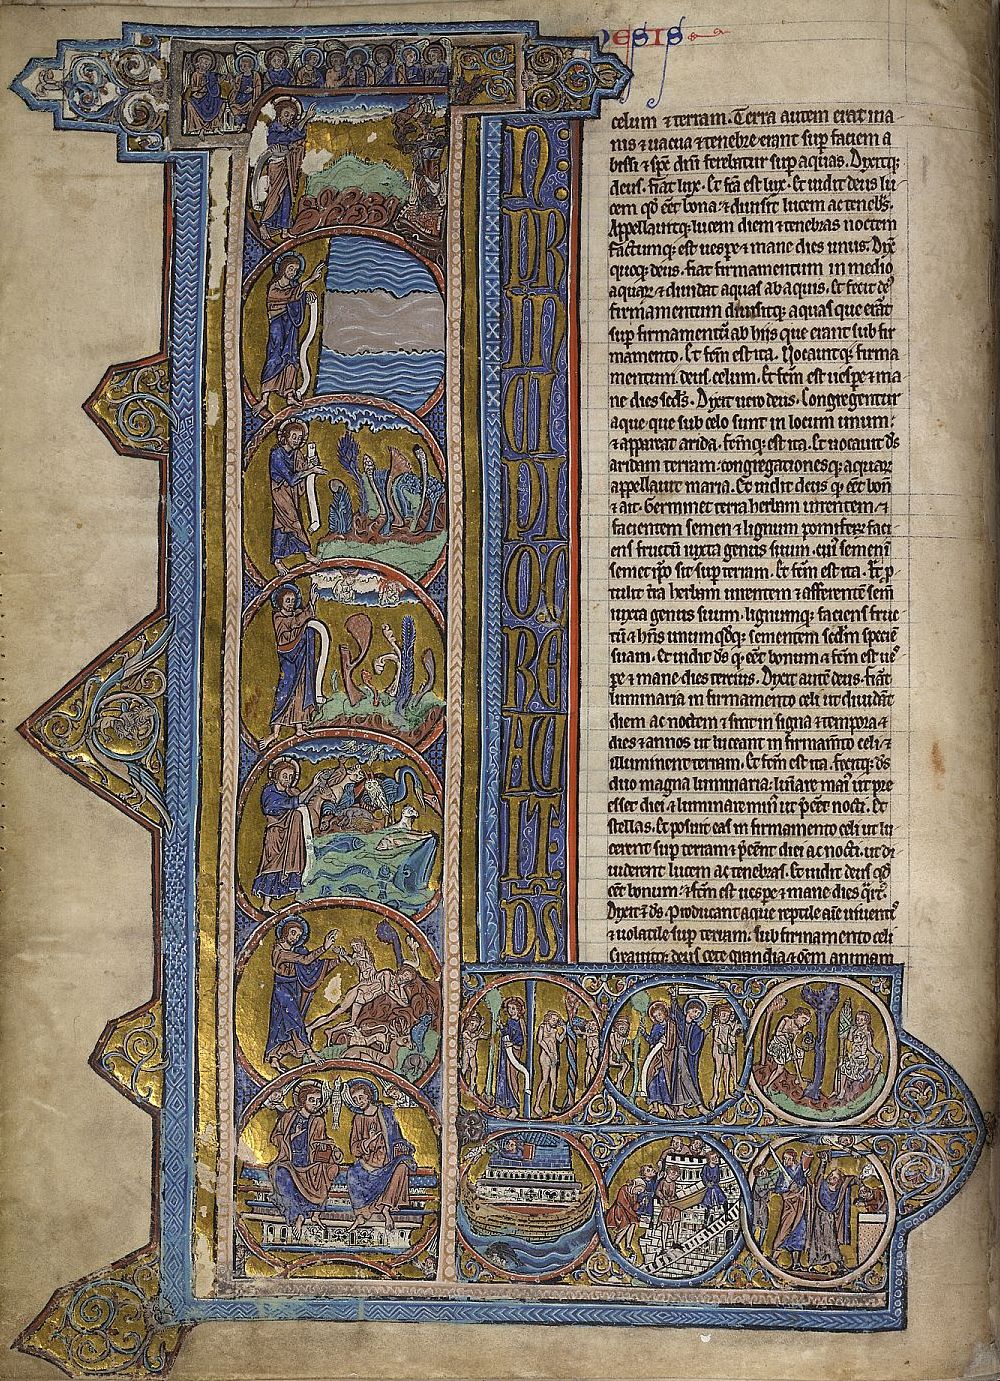 NESIS
N PRINCIPIO CREAVIT DS
celum ⁊ terram. Terra autem erat ina
nis ⁊ uacua ⁊ tenebre erant sup faciem a
bissi ⁊ sps dni ferebatur sup aquas. Dixitq;
deus. fiat lux. Et fca est lux. Et uidit deus lu
cem qd eet bona: ⁊ diuisit lucem ac tenebs.
Appellauitq; lucem diem ⁊ tenebras noctem
factumq; est uespe ⁊ mane dies unus. Dix
quoq; deus. fiat firmamentum in medio
aquar ⁊ diuidat aquas ab aquis. Et fecit ds
firmamentum diuisitq; aquas que erant
sup firmamentu ab hiis que erant sub fir
mamento. Et fcm est ita. Uocauitq; firma
mentum deus celum. Et fcm est uespe ⁊ ma
ne dies scds. Dixit uero deus. Congregentur
aque que sub celo sunt in locum unum:
⁊ appareat arida. fcmq; est ita. Et uocauit ds
aridam terram: congregationesq; aquar
appellauit maria. Et uidit deus q eet bon
⁊ ait. Germinet terra herbam uirentem ⁊
facientem semen ⁊ lignum pomifer faci
ens fructu iuxta genus suum. cui semen
semet ipo sit sup terram. Et fcm est ita. Et p
tulit tra herbam uirentem ⁊ afferente sem
iuxta genus suum. lignumq; faciens fruc
tu ⁊ hns unumqdq; sementem scdm specie
suam. Et uidit ds q eet bonum ⁊ fcm est ues
pe ⁊ mane dies tercius. Dixit aute deus. fiat
luminaria in firmamento celi ut diuidat
diem ac noctem ⁊ sint in signa ⁊ tempora ⁊
dies ⁊ annos ut luceant in firmamto celi ⁊
illuminent terram. Et fcm est ita. fecitq; ds
duo magna luminaria: luminare mai ut pre
esset diei ⁊ luminare min ut peet nocti. Et
stellas. Et posuit eas in firmamento celi ut lu
cerent sup terram ⁊ peent diei ac nocti. ut di
uiderent lucem ac tenebras. Et uidit deus qd
eet bonum: ⁊ fcm est uespe ⁊ mane dies qrt.
Dixit ⁊ ds. Producant aque reptile aie uiuent
⁊ uolatile sup terram. sub firmamento celi
Creauitq; deus cete grandia ⁊ oem animam